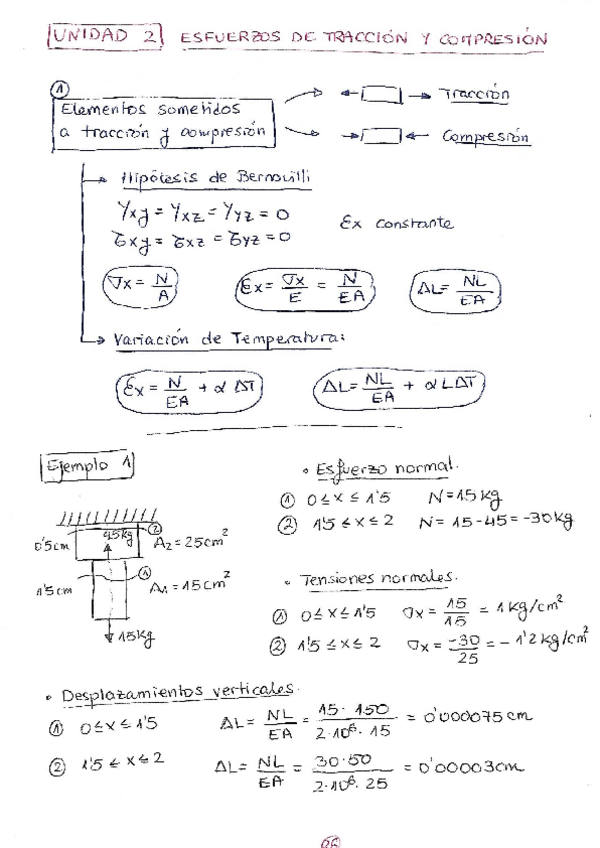 UNIDAD 2 ESFUERZOS DE TRACCIÓN Y COMPRESIÓN
① Elementos sometidos
a tracción y compresión
Tracción
Compresión
Hipótesis de Bernouilli
γxy = γxz = γyz = 0
τxy = τxz = τyz = 0
εx constante
σx = N/A
εx = σx/E = N/EA
ΔL = NL/EA
Variación de Temperatura:
εx = N/EA + α ΔT
ΔL = NL/EA + α L ΔT
Ejemplo 1
0'5cm
45kg
②
A₂ = 25cm²
1'5cm
①
A₁ = 15cm²
15kg
• Esfuerzo normal.
① 0 ≤ x ≤ 1'5 N = 15kg
② 1'5 ≤ x ≤ 2 N = 15-45 = -30kg
• Tensiones normales.
① 0 ≤ x ≤ 1'5 σx = 15/15 = 1 kg/cm²
② 1'5 ≤ x ≤ 2 σx = -30/25 = -1'2 kg/cm²
• Desplazamientos verticales.
① 0 ≤ x ≤ 1'5 ΔL = NL/EA = 15·150/2·10⁶·15 = 0'000075cm
② 1'5 ≤ x ≤ 2 ΔL = NL/EA = 30·50/2·10⁶·25 = 0'00003cm